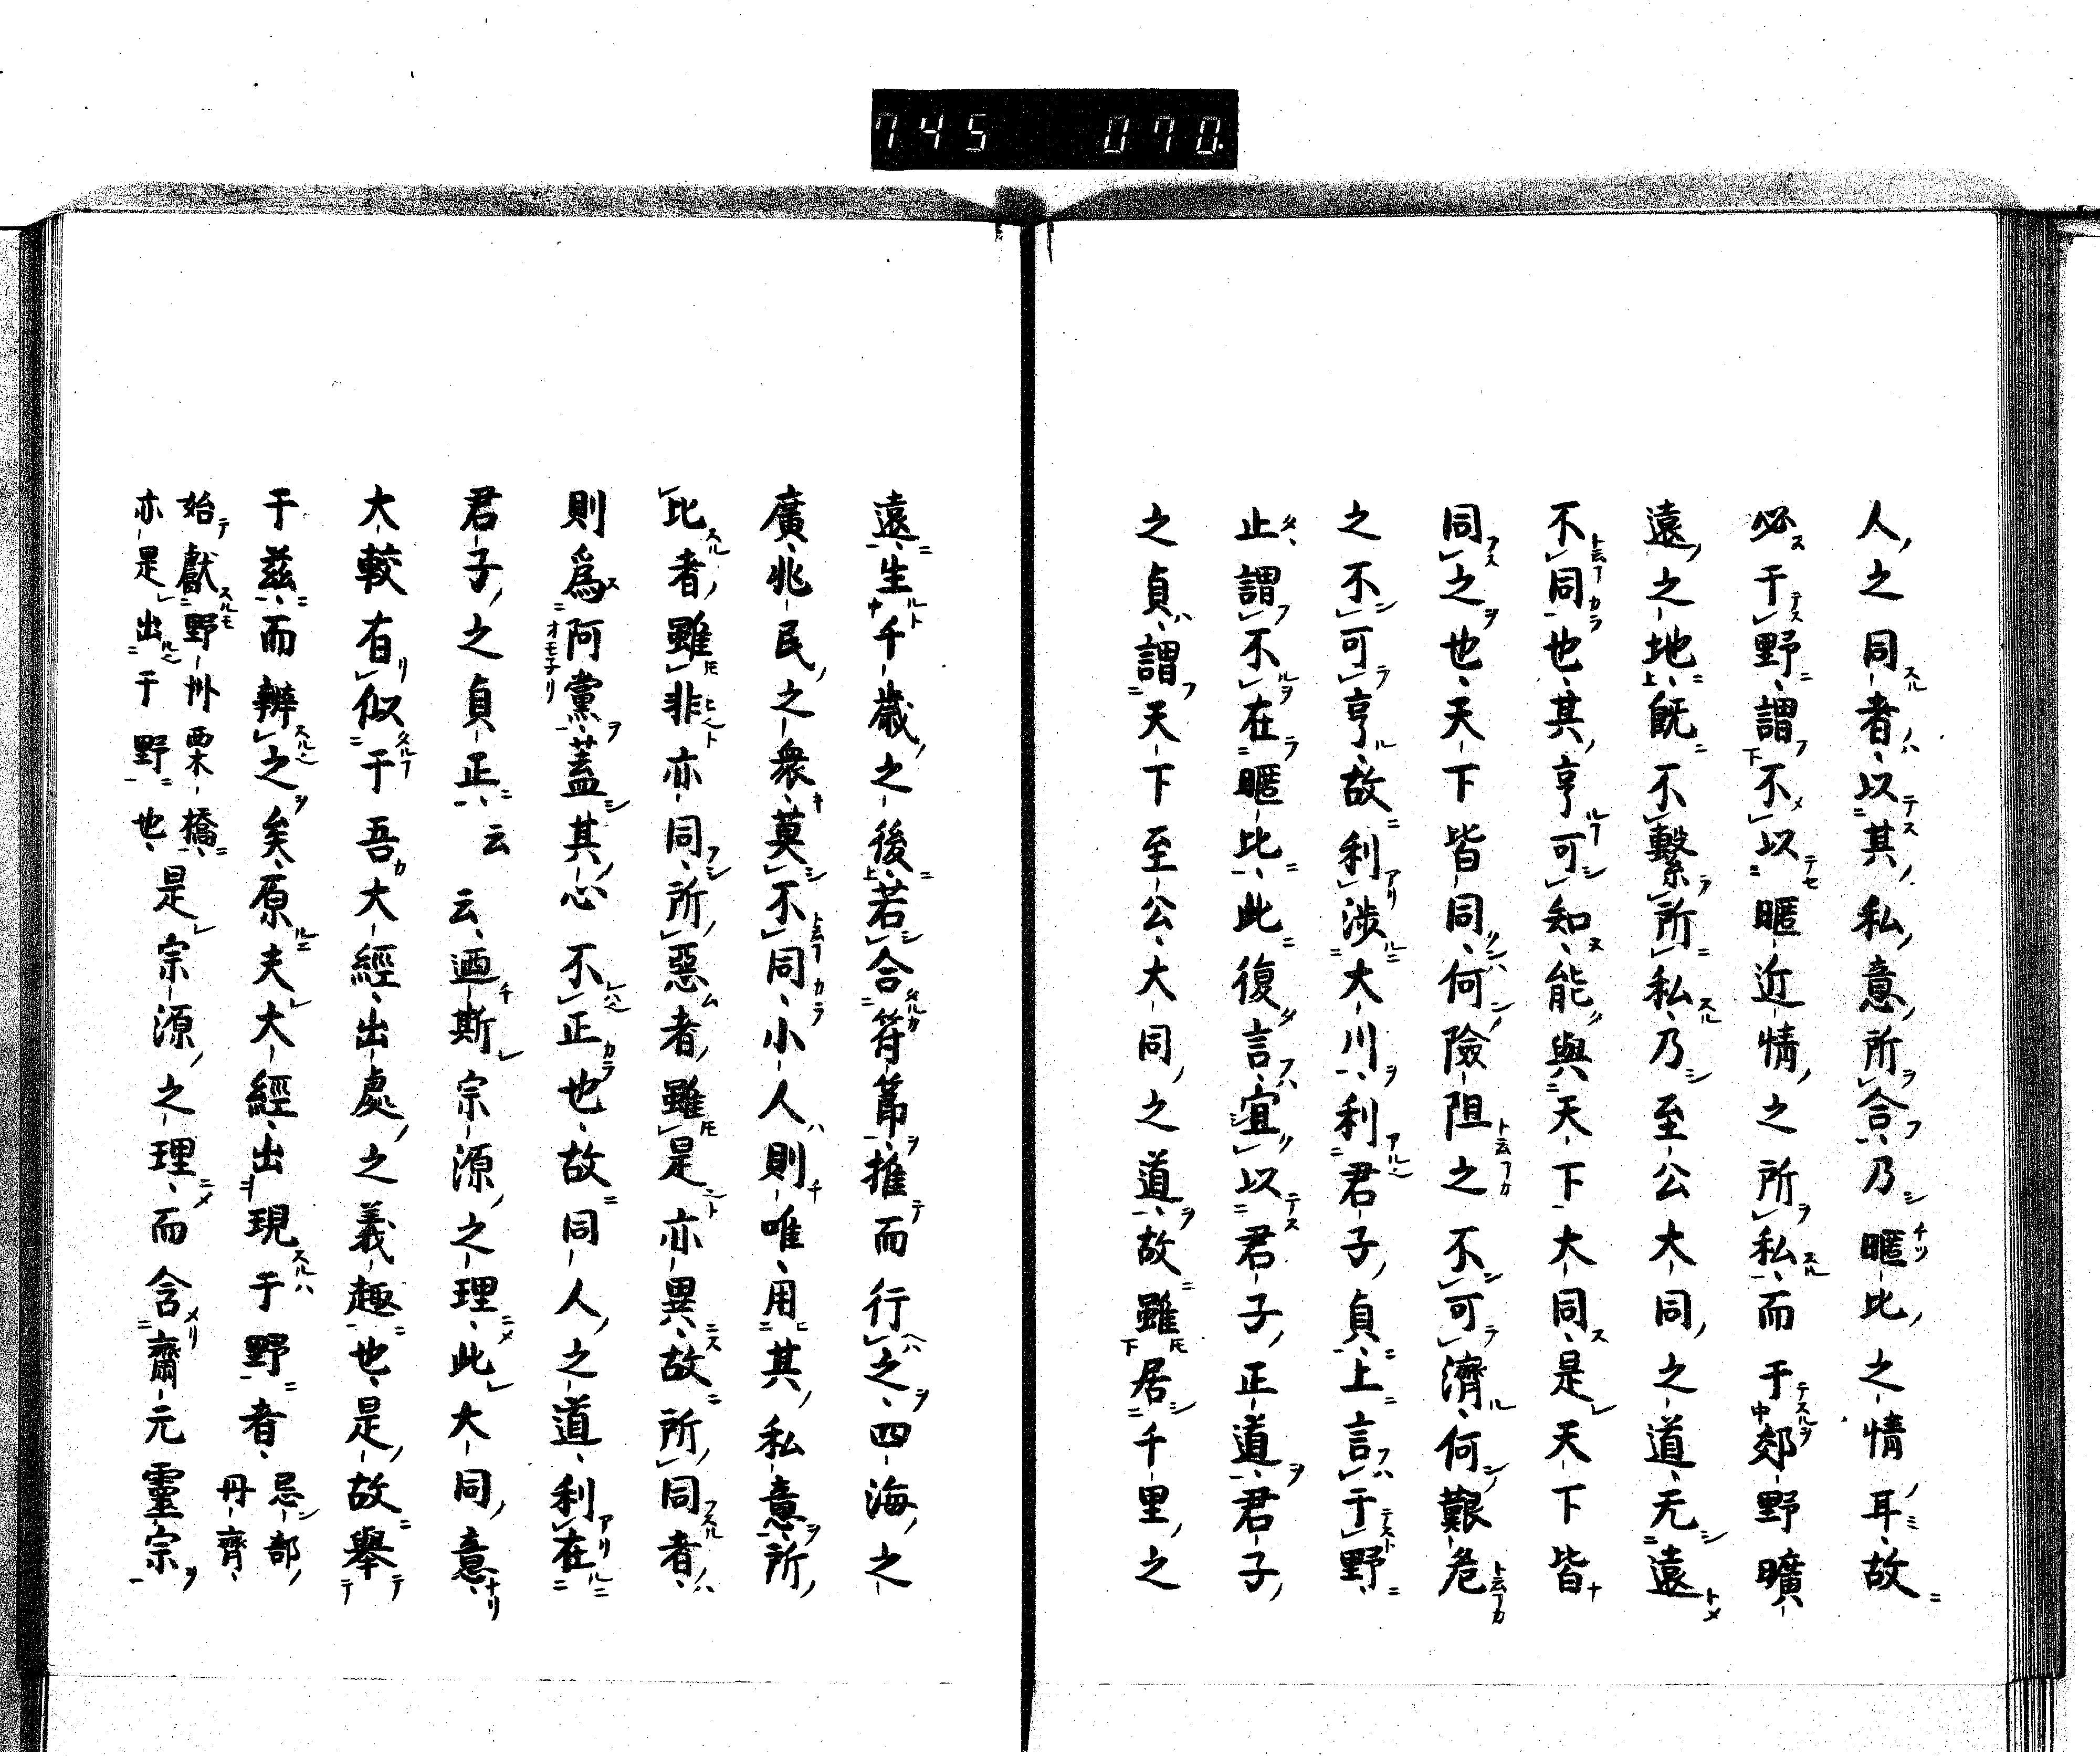 745 070
人之同者以其私意所合乃暱比之情耳故
必于野謂不以暱近情之所私而于郊野曠
遠之地既不繫所私乃至公大同之道无遠
不同也其亨可知能與天下大同是天下皆
同之也天下皆同何險阻之不可濟何艱危
之不可亨故利涉大川利君子貞上言于野
止謂不在暱比此復言宜以君子正道君子
之貞謂天下至公大同之道故雖居千里之
遠生千歲之後若合符節推而行之四海之
廣兆民之衆莫不同小人則唯用其私意所
比者雖非亦同所惡者雖是亦異故所同者
則爲阿黨蓋其心不正也故同人之道利在
君子之貞正云云迺斯宗源之理此大同意
大較有似于吾大經出處之義趣也是故舉
于茲而辨之矣原夫大經出現于野者忌部丹齊
始獻野州栗橋亦是出于野也是宗源之理而含齋元靈宗